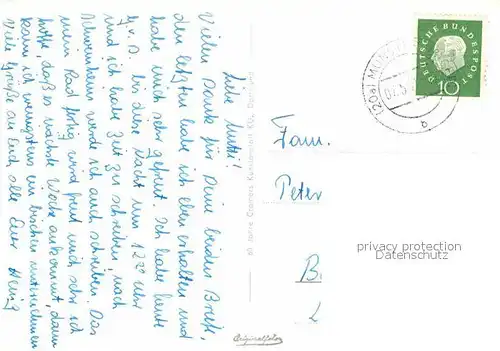 Liebe Mutti!
Vielen Dank für Deine beiden Briefe,
den letzten habe ich eben erhalten und
habe mich sehr gefreut. Ich habe heute
G.v.D. bis diese Nacht um 1 22 Uhr
und ich habe Zeit zu schreiben, nach
werde ich auch schreiben. Das
mein Rad fertig wird freut mich sehr, ich
hoffe, daß es nächste Woche ankommt, dann
kann ich wenigstens ein bischen unternehmen
Viele Grüße an Euch alle Euer Heinz
Originalfoto
DEUTSCHE BUNDESPOST
10
(20a) MUNSTER
07.5.
a
Fam.
Peter
B
L
privacy protection
Datenschutz